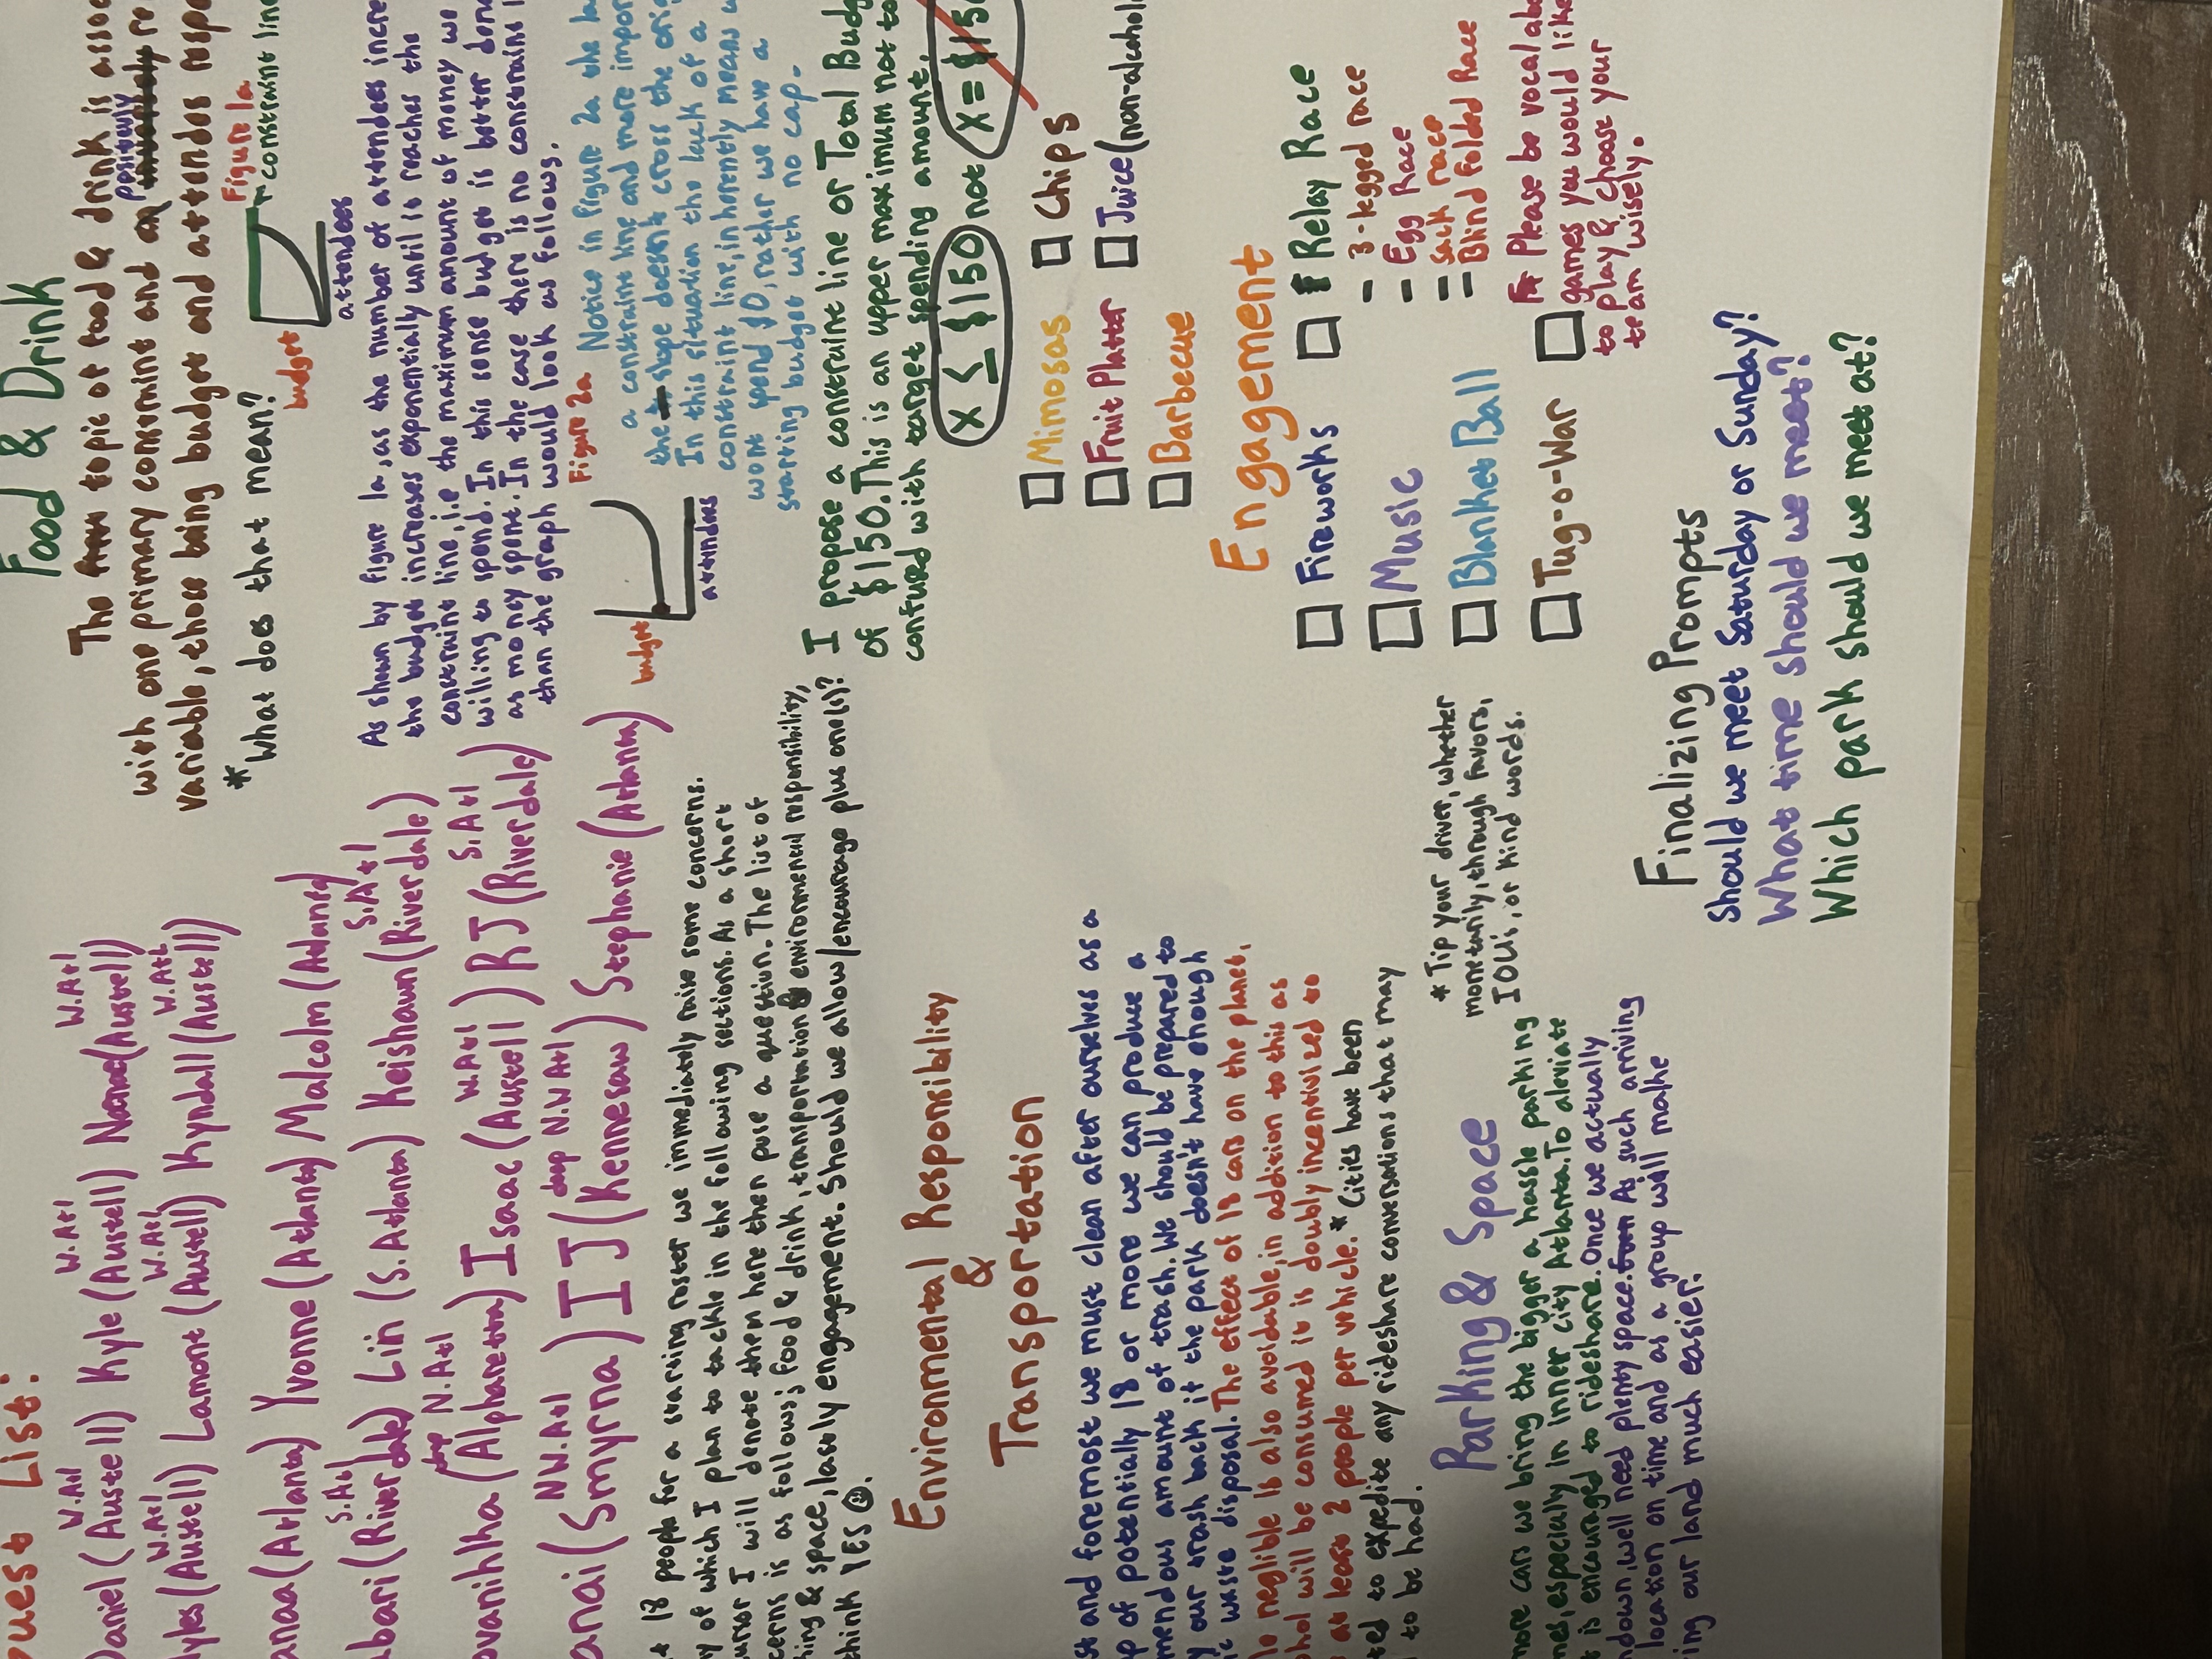 uest List:
W.Atl W.Atl W.Atl
Daniel (Austell) Kyle (Austell) (Austell)
W.Atl W.Atl W.Atl
yles (Austell) Lamont (Austell) Kyndall (Austell)
anaa (Atlanta) Yvonne (Atlanta) Malcolm (Atlanta)
S.Atl S.Atl
abari (Riverdale) Lin (S. Atlanta) Keishawn (Riverdale)
deep N.Atl W.Atl S.Atl
ovanihka (Alpharetta) Isaac (Austell) RJ (Riverdale)
NW.Atl deep N.W Atl
anai (Smyrna) IJ (Kennesaw) Stephanie (Atlanta)
t 18 people for a starting roster we immediately raise some concerns.
y of which I plan to tackle in the following sections. As a short
ursor I will denote them here then pose a question. The list of
cerns is as follows; food & drink, transportation & environmental responsibility,
king & space, lastly engagement. Should we allow/encourage plus one(s)?
think YES ☺.
Environmental Responsibility
&
Transportation
st and foremost we must clean after ourselves as a
up of potentially 18 or more we can produce a
mendous amount of trash. We should be prepared to
y our trash back if the park doesn't have enough
ic waste disposal. The effect of 18 cars on the planet,
le neglible is also avoidable, in addition to this as
ohol will be consumed it is doubly incentivized to
at least 2 people per vehicle. * Cities have been
ted to expedite any rideshare conversations that may
to be had.
Parking & Space
more cars we bring the bigger a hassle parking
mes, especially in inner city Atlanta. To aleviate
t is encouraged to rideshare. Once we actually
ndown, well need plenty space. As such arriving
location on time and as a group will make
ing our land much easier.
* Tip your driver, whether
monetarily, through favors,
IOU's, or kind words.
Food & Drink
The topic of food & drink is assoc
positively
with one primary constraint and re
variable, those being budget and attendes respe
* What does that mean?
Figure 1a
constraint line
budget
attendees
As shown by figure 1a, as the number of attendees incre
the budget increases exponentially until it reaches the
constraint line, i.e the maximum amount of money we
willing to spend. In this sense budget is better deno
as money spent. In the case there is no constraint l
than the graph would look as follows.
Figure 2a
budget
attendees
Notice in figure 2a the la
a constraint line and more impor
the slope doesn't cross the orig
In this situation the lack of a
constraint line, inherently means w
wont spend $0, rather we have a
starting budget with no cap.
I propose a constraint line or Total Budg
of $150. This is an upper maximum not to
confused with target spending amount.
x ≤ $150 not x = $150
Mimosas Chips
Fruit Platter Juice (non-alcohol
Barbecue
Engagement
Fireworks Relay Race
- 3-legged race
Music - Egg Race
- sack race
Blanket Ball - Blind folded Race
Tug-o-War Please be vocal abo
games you would like
to play & choose your
team wisely.
Finalizing Prompts
Should we meet Saturday or Sunday?
What time should we meet?
Which park should we meet at?